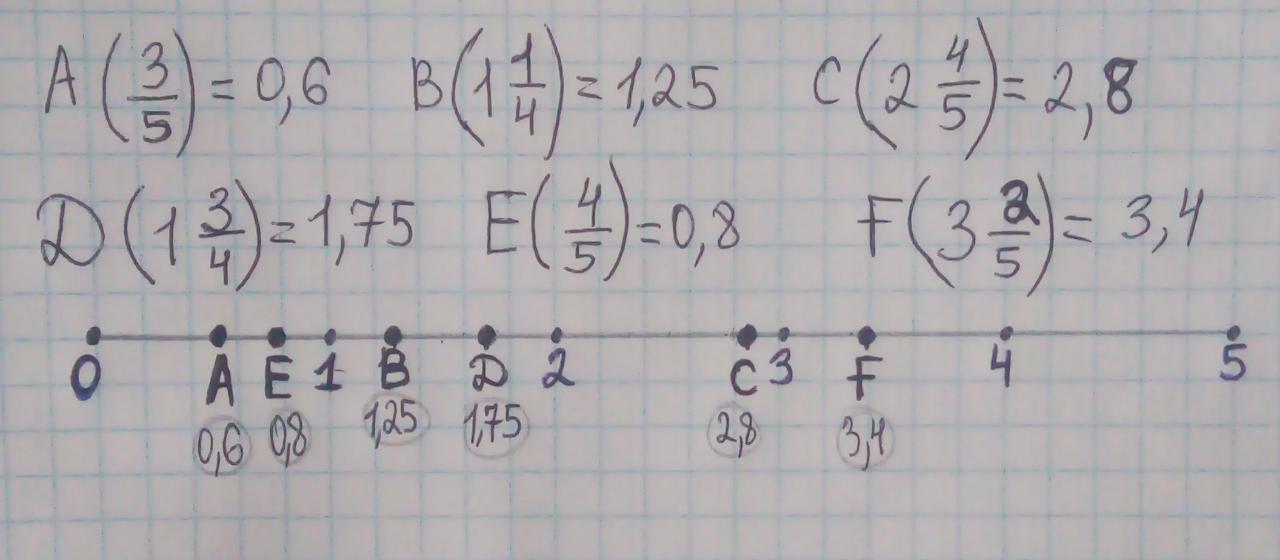 A(3/5) = 0,6 B(1 1/4) = 1,25 C(2 4/5) = 2,8
D(1 3/4) = 1,75 E(4/5) = 0,8 F(3 2/5) = 3,4
0 A E 1 B D 2 C 3 F 4 5
0,6 0,8 1,25 1,75 2,8 3,4